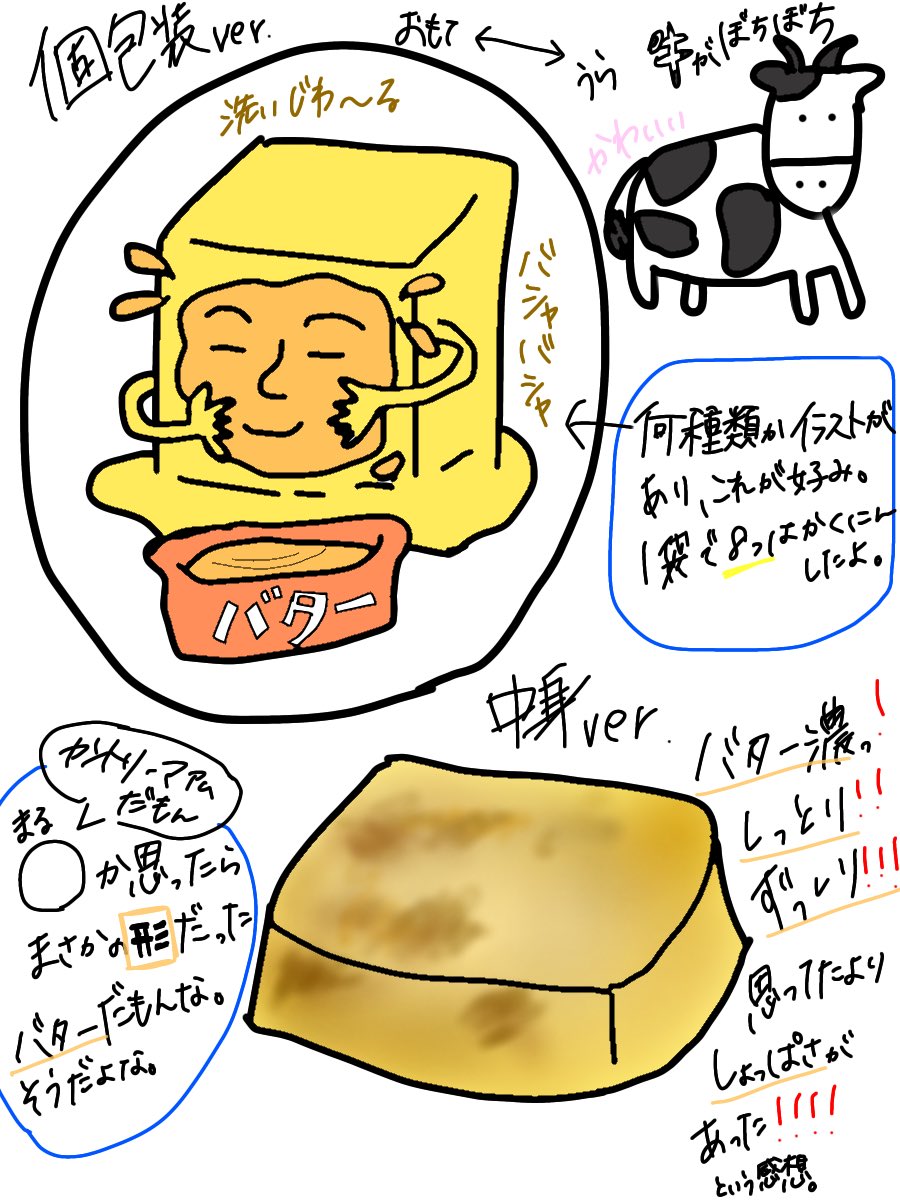 個包装ver.
おもて ⟷ うら
牛がぼちぼち
かわいい
洗いじわ〜る
バシャバシャ
バター
何種類かイラストが
あり、これが好み。
1袋で8つはかくにん
したよ。
中身ver.
カントリーマアム
だもん
まる
◯か思ったら
まさかの形だった
バターだもんな。
そうだよな。
バター濃っ!
しっとり!!
ずっしり!!!
思ってたより
しょっぱさが
あった!!!!
という感想。